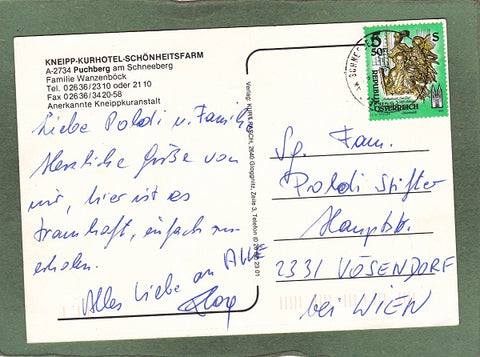 KNEIPP-KURHOTEL-SCHÖNHEITSFARM
A-2734 Puchberg am Schneeberg
Familie Wanzenböck
Tel. 02636/2310 oder 2110
Fax 02636/3420-58
Anerkannte Kneippkuranstalt
Liebe Poldi u. Famil
Herzliche Grüße von
mir, hier ist es
traumhaft, einfach zum
erholen.
Alles Liebe an ALLE
Verlag: 2640 Gloggnitz, Zeile 3, Telefon
S
REPUBLIK
ÖSTERREICH
Sg. Fam.
Poldi Stifter
Hauptstr.
2331 VÖSENDORF
bei WIEN